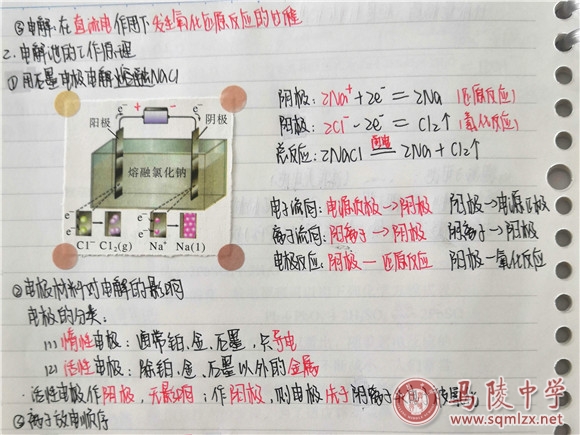 ③电解:在直流电作用下发生氧化还原反应的过程
2.电解池的工作原理
①用石墨电极电解熔融NaCl
e⁻ + − e⁻
阳极 阴极
熔融氯化钠
e⁻ e⁻
e⁻ e⁻
Cl⁻ Cl₂(g) Na⁺ Na(l)
阴极:2Na⁺+2e⁻=2Na(还原反应)
阳极:2Cl⁻-2e⁻=Cl₂↑(氧化反应)
总反应:2NaCl 通电 2Na+Cl₂↑
电子流向:电源负极→阴极 阳极→电源正极
离子流向:阳离子→阴极 阴离子→阳极
电极反应:阴极—还原反应 阳极—氧化反应
②电极材料对电解的影响
电极的分类:
(1)惰性电极:通常铂、金、石墨,只导电
(2)活性电极:除铂、金、石墨以外的金属
活性电极作阴极,无影响;作阳极,则电极先于阴离子
③离子放电顺序
马陵中学
www.sqmlzx.net